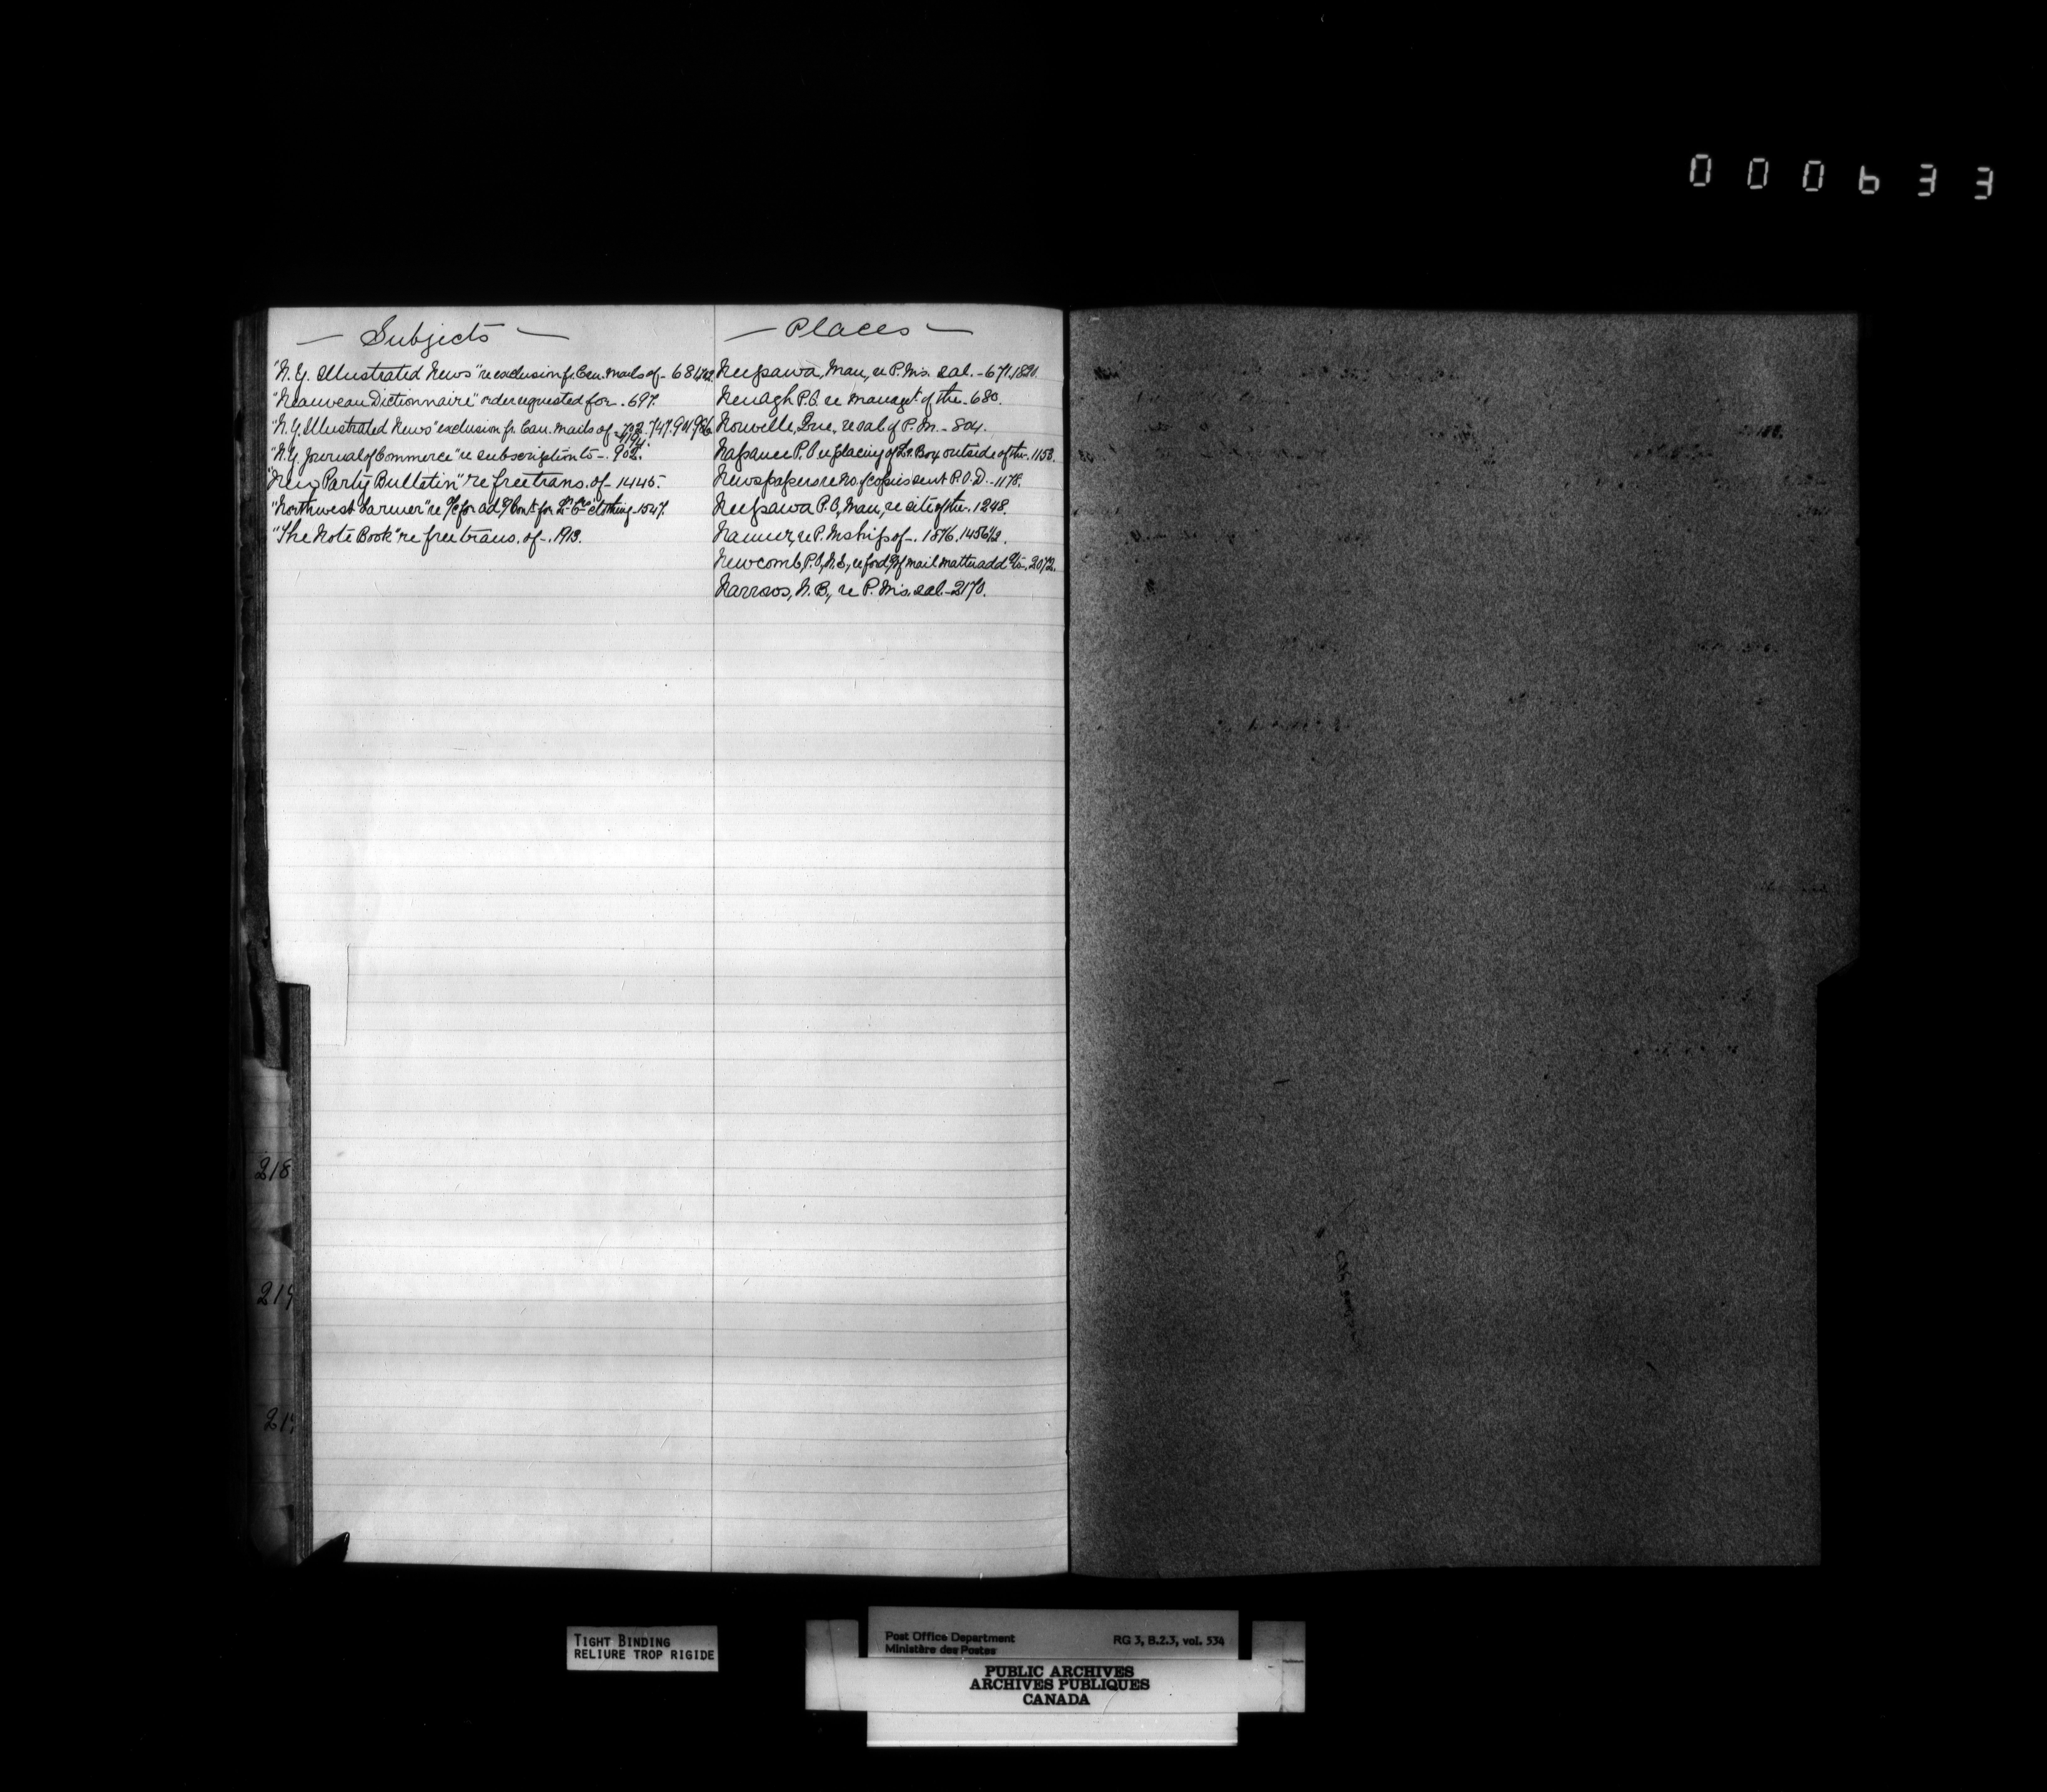 000633
— Subjects —
"N. Y. Illustrated News" re exclusion fr. Can. mails of - 681,
"Neauveau Dictionnaire" order requested for - 697.
"N.Y. Illustrated News" exclusion fr. Can. mails of - 702. 747. 901. 986.
"N.Y. Journal of Commerce" re subscription to - 902.
"New Party Bulletin" re free trans. of - 1445.
"Northwest Farmer" re for ad clothing - 1527.
"The Note Book" re free trans. of - 1913.
— Places —
Neepawa, Man, re P.M's. sal. - 671. 1821.
Nenagh P.O. re managt of the - 680.
Norwelle, Que, re sal. of P.M. - 804.
Napanee P.O. re placing of Lr. Box outside of the - 1153.
Newspapers re No. of copies sent P.O.D. - 1178.
Neepawa P.O, Man, re site of the - 1248.
Namur, re P.M'ship of - 1376. 1456½.
Newcomb P.O, N.S, re ford'g of mail matter add - 2072.
Narrows, N.B., re P.M's. sal. - 2170.
218
219
21
TIGHT BINDING
RELIURE TROP RIGIDE
Post Office Department RG 3, B.2.3, vol. 534
Ministère des Postes
PUBLIC ARCHIVES
ARCHIVES PUBLIQUES
CANADA